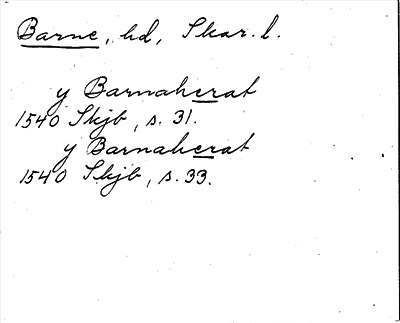 Barne, hd, Skar. l.
y Barnaherat
1540 Skjb, s. 31.
y Barnaherat
1540 Skjb, s. 33.